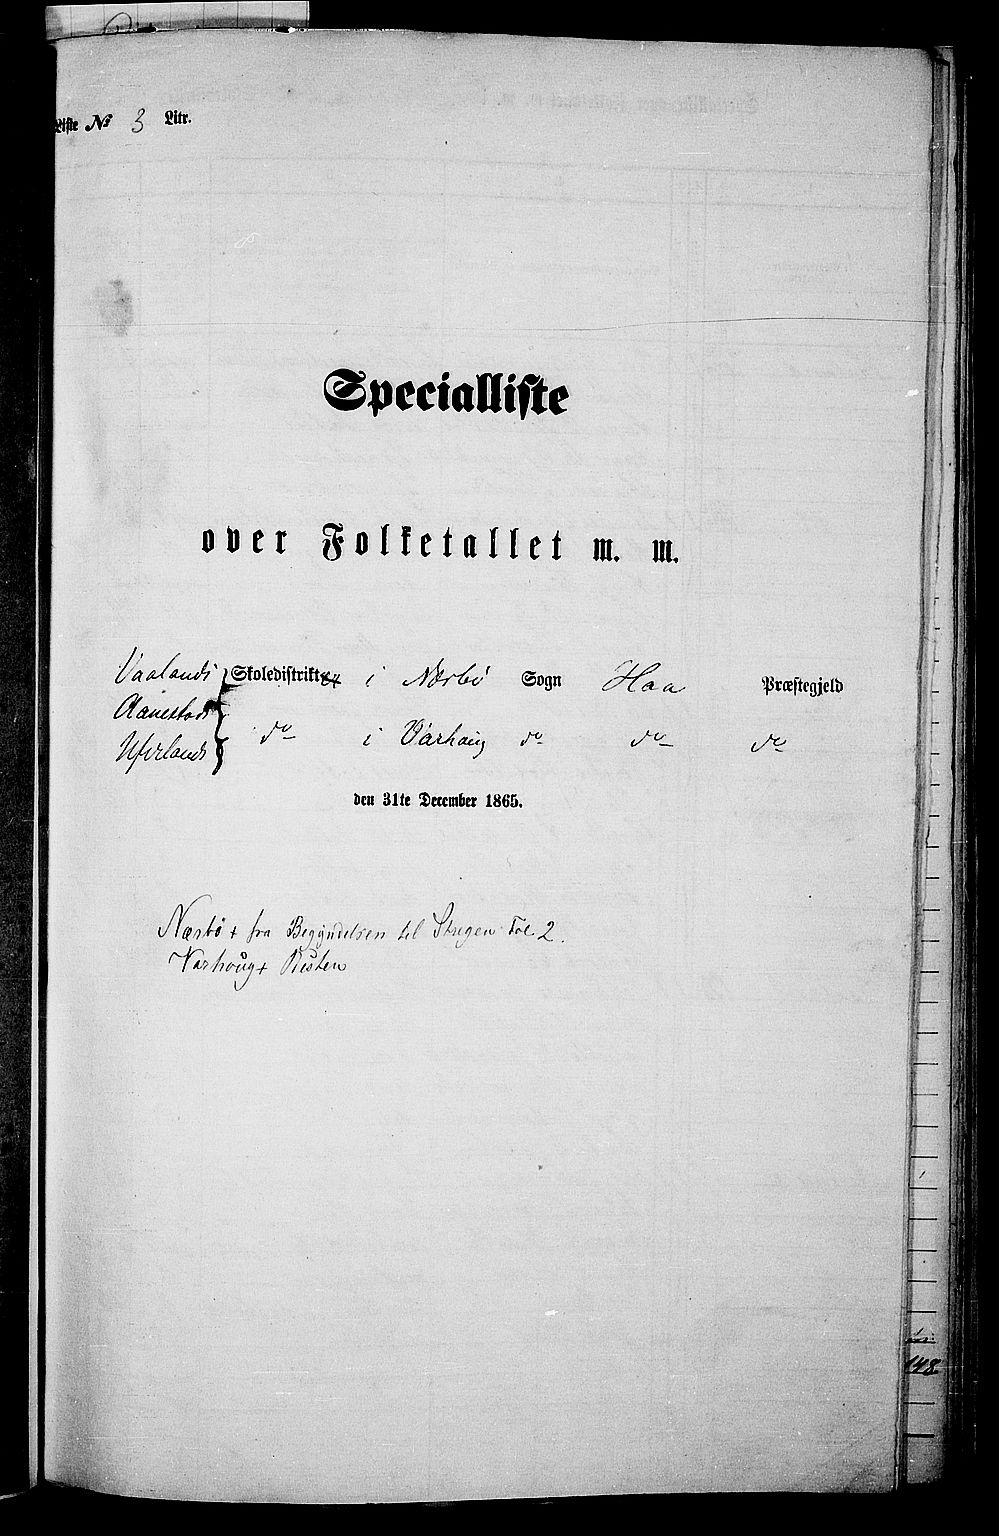 Liste No 3 Litr.
Specialliste
over Folketallet m. m.
Vaalands Skoledistrikter i Nærbø Sogn Haa Præstegjeld
Aanestads
do i Varhaug do do do
den 31te December 1865.
Nærbø + fra Begyndelsen til Stregen Fol 2.
Varhoug + Resten
148